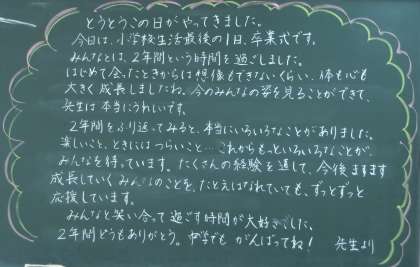 とうとうこの日がやってきました。
今日は、小学校生活最後の1日、卒業式です。
みんなとは、2年間という時間を過ごしました。
はじめて会ったときからは想像もできないくらい、体も心も
大きく成長しましたね。今のみんなの姿を見ることができて、
先生は本当にうれしいです。
2年間をふり返ってみると、本当にいろいろなことがありました。
楽しいこと、ときにはつらいこと…これからもっといろいろなことが、
みんなを待っています。たくさんの経験を通して、今後ますます
成長していくみんなのことを、たとえはなれていても、ずっとずっと
応援しています。
みんなと笑い合って過ごす時間が大好きでした。
2年間どうもありがとう。中学でもがんばってね！ 先生より